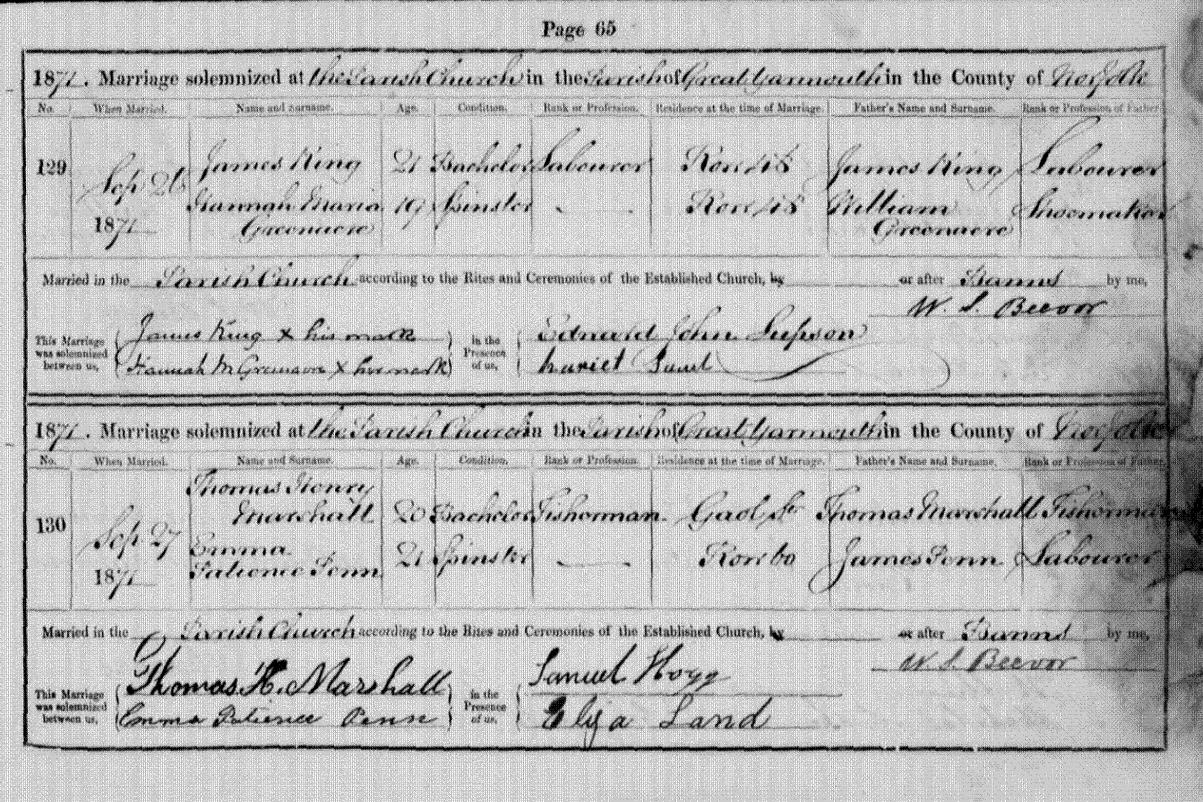 Page 65
1871. Marriage solemnized at the Parish Church in the Parish of Great Yarmouth in the County of Norfolk
No. When Married. Name and Surname. Age. Condition. Rank or Profession. Residence at the time of Marriage. Father's Name and Surname. Rank or Profession of Father.
129 Sep 26 James King 21 Bachelor Labourer Row 118 James King Labourer
1871 Hannah Maria 19 Spinster - Row 118 William Shoemaker
Greenacre Greenacre
Married in the Parish Church according to the Rites and Ceremonies of the Established Church, by or after Banns by me,
W. S. Beevor
This Marriage was solemnized between us, James King x his mark in the Presence of us, Edward John
Hannah M Greenacre x her mark Harriet
1871. Marriage solemnized at the Parish Church in the Parish of Great Yarmouth in the County of Norfolk
No. When Married. Name and Surname. Age. Condition. Rank or Profession. Residence at the time of Marriage. Father's Name and Surname. Rank or Profession of Father.
130 Sep 27 Thomas Henry
Marshall 20 Bachelor Fisherman Gaol St Thomas Marshall Fisherman
1871 Emma
Patience Penn 21 Spinster - Row 60 James Penn Labourer
Married in the Parish Church according to the Rites and Ceremonies of the Established Church, by or after Banns by me,
W. S. Beevor
This Marriage was solemnized between us, Thomas H. Marshall in the Presence of us, Samuel Hogg
Emma Patience Penn Eliza Land